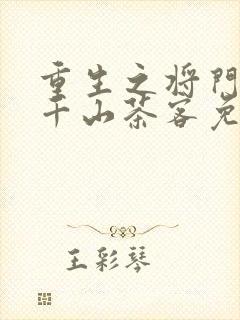 重生之将门
千山茶客免
王彩琴